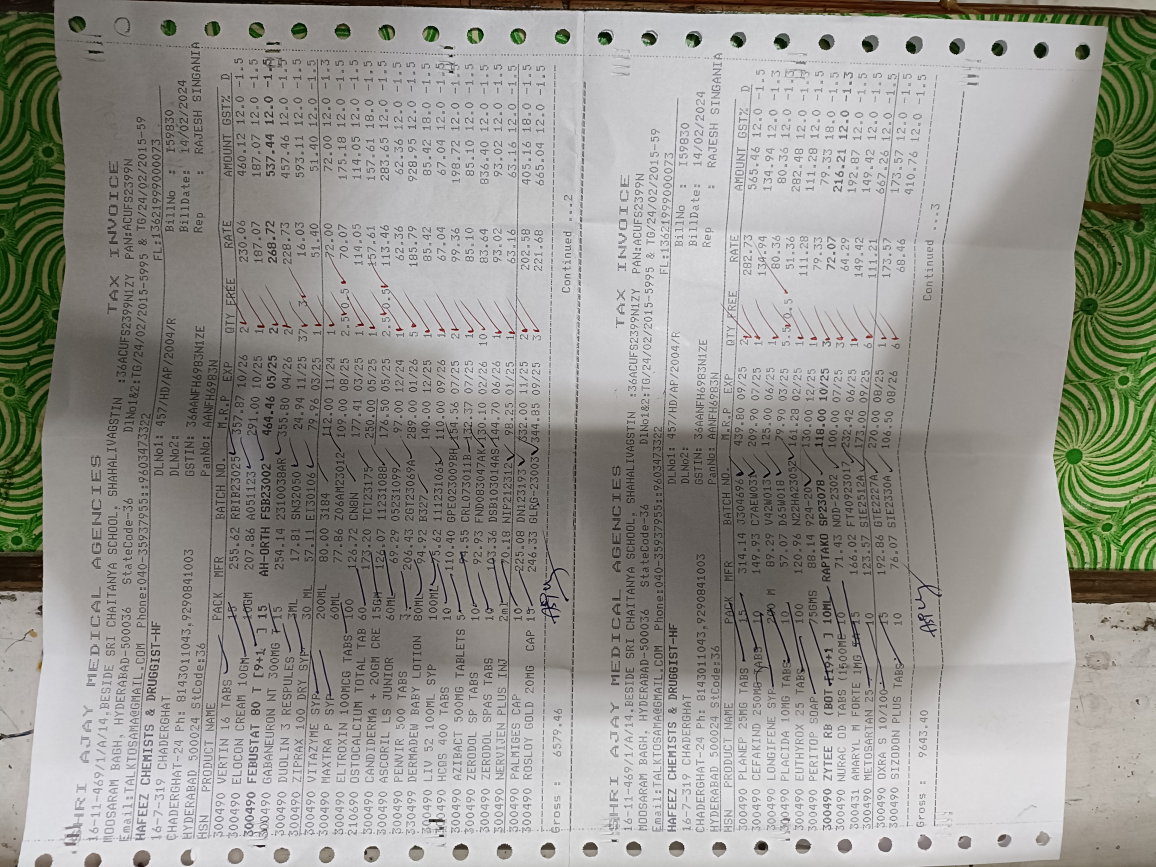 SHRI AJAY MEDICAL AGENCIES TAX INVOICE
16-11-469/1/A/14,BESIDE SRI CHAITANYA SCHOOL, SHAHALIVAGSTIN :36ACUFS2399N1ZY PAN:ACUFS2399N
MOOSARAM BAGH, HYDERABAD-500036 StateCode-36 DlNo1&2:TG/24/02/2015-5995 & TG/24/02/2015-59
Email:TALKTOSAMA@GMAIL.COM Phone:040-35937955::9603473322 FL:13621999000073
HAFEEZ CHEMISTS & DRUGGIST-HF DLNo1: 457/HD/AP/2004/R BillNo : I59830
16-7-319 CHADERGHAT DLNo2: BillDate: 14/02/2024
CHADERGHAT-24 Ph: 8143011043,9290841003 GSTIN: 36AANFH6983N1ZE Rep : RAJESH SINGANIA
HYDERABAD 500024 StCode:36 PanNo: AANFH6983N
HSN PRODUCT NAME PACK MFR BATCH NO. M.R.P EXP QTY FREE RATE AMOUNT GST% D
300490 VERTIN 16 TABS 15 255.62 RBTB23025 357.87 10/26 2 230.06 460.12 12.0 -1.5
300490 ELOCON CREAM 10GM 10GM 207.86 A051123 291.00 10/25 1 187.07 187.07 12.0 -1.5
300490 FEBUSTAT 80 T [9+1 ] 15 AH-ORTH FSB23002 464.46 05/25 2 268.72 537.44 12.0 -1.5
300490 GABANEURON NT 300MG T 15 254.14 2310038AR 355.80 04/26 2 228.73 457.46 12.0 -1.5
300490 DUOLIN 3 RESPULES 3ML 17.81 SN32050 24.94 11/25 37 3 16.03 593.11 12.0 -1.5
300490 ZIPRAX 100 DRY SYP 30 ML 57.11 EI30106 79.96 03/25 1 51.40 51.40 12.0 -1.5
300490 VITAZYME SYP 200ML 80.00 3184 112.00 11/24 1 72.00 72.00 12.0 -1.3
300490 MAXTRA P SYP 60ML 77.86 Z06AM23012 109.00 08/25 2.5 0.5 70.07 175.18 12.0 -1.5
300490 ELTROXIN 100MCG TABS 100 126.72 CN8N 177.41 03/25 1 114.05 114.05 12.0 -1.5
210690 OSTOCALCIUM TOTAL TAB 60 173.20 TCT23175 250.00 05/25 1 157.61 157.61 18.0 -1.5
300490 CANDIDERMA + 20GM CRE 15GM 126.07 11231088 176.50 05/25 2.5 0.5 113.46 283.65 12.0 -1.5
300490 ASCORIL LS JUNIOR 60ML 69.29 05231099 97.00 12/24 1 62.36 62.36 12.0 -1.5
300490 PENVIR 500 TABS 3 206.43 2GT23069A 289.00 01/26 5 185.79 928.95 12.0 -1.5
330499 DERMADEW BABY LOTION 80ML 94.92 B327 140.00 12/25 1 85.42 85.42 18.0 -1.5
300490 LIV 52 100ML SYP 100ML 75.62 11123106 110.00 09/26 1 67.04 67.04 12.0 -1.5
300490 HCQS 400 TABS 10 110.40 GPE023009BH 154.56 07/25 2 99.36 198.72 12.0 -1.5
300490 AZIBACT 500MG TABLETS 5 94.55 CRL073011B 132.37 07/25 1 85.10 85.10 12.0 -1.5
300490 ZERODOL SP TABS 10 92.93 FND083047AK 130.10 02/26 10 83.64 836.40 12.0 -1.5
300490 ZERODOL SPAS TABS 10 103.36 DSB103014AS 144.70 10/25 1 93.02 93.02 12.0 -1.5
300490 NERVIGEN PLUS INJ 2ml 70.18 NIP212312 98.25 01/25 1 63.16 63.16 12.0 -1.5
300490 PALMIGES CAP 10 225.08 DN123193 332.00 11/25 2 202.58 405.16 18.0 -1.5
300490 ROSLOY GOLD 20MG CAP 15 246.33 GLRG-23003 344.85 09/25 3 221.68 665.04 12.0 -1.5
Gross : 6579.46 Continued ...2
SHRI AJAY MEDICAL AGENCIES TAX INVOICE
16-11-469/1/A/14,BESIDE SRI CHAITANYA SCHOOL, SHAHALIVAGSTIN :36ACUFS2399N1ZY PAN:ACUFS2399N
MOOSARAM BAGH, HYDERABAD-500036 StateCode-36 DlNo1&2:TG/24/02/2015-5995 & TG/24/02/2015-59
Email:TALKTOSAMA@GMAIL.COM Phone:040-35937955::9603473322 FL:13621999000073
HAFEEZ CHEMISTS & DRUGGIST-HF DLNo1: 457/HD/AP/2004/R BillNo : I59830
16-7-319 CHADERGHAT DLNo2: BillDate: 14/02/2024
CHADERGHAT-24 Ph: 8143011043,9290841003 GSTIN: 36AANFH6983N1ZE Rep : RAJESH SINGANIA
HYDERABAD 500024 StCode:36 PanNo: AANFH6983N
HSN PRODUCT NAME PACK MFR BATCH NO. M.R.P EXP QTY FREE RATE AMOUNT GST% D
300490 PLANEP 25MG TABS 15 314.14 J304696 439.80 09/25 2 282.73 565.46 12.0 -1.5
300490 CEFAKIND 250MG TABS 10 149.93 C7AEW03 209.90 07/25 1 134.94 134.94 12.0 -1.3
300490 LONDIFENE SYP 200 M 89.29 V42W013 125.00 06/25 1 80.36 80.36 12.0 -1.5
300490 PLACIDA 10MG TABS 10 57.07 D65W018 79.90 03/25 5.5 0.5 51.36 282.48 12.0 -1.3
300490 EUTHYROX 25 TABS 100 120.96 N22HA23052 161.28 02/25 1 111.28 111.28 12.0 -1.5
300490 PERITOP SOAP 75GMS 88.14 924-20 130.00 12/25 1 79.33 79.33 18.0 -1.5
300490 ZYTEE RB (BOT [19+1 ] 10ML RAPTAKO SP23078 118.00 10/25 3 72.07 216.21 12.0 -1.3
300490 NURAC OD TABS (1500ME 10 71.43 NOD-2302 100.00 07/25 3 64.29 192.87 12.0 -1.5
300431 AMARYL M FORTE 1MG TA 15 166.02 FT4092301 232.42 06/25 1 149.42 149.42 12.0 -1.5
300490 METOSARTAN 25 10 123.57 SIE2512A 173.00 09/25 6 111.21 667.26 12.0 -1.5
300490 OXRA S 10/100 15 192.86 GTE2227A 270.00 08/25 1 173.57 173.57 12.0 -1.5
300490 SIZODON PLUS TABS 10 76.07 SIE2330A 106.50 08/26 6 68.46 410.76 12.0 -1.5
Gross : 9643.40 Continued ...3